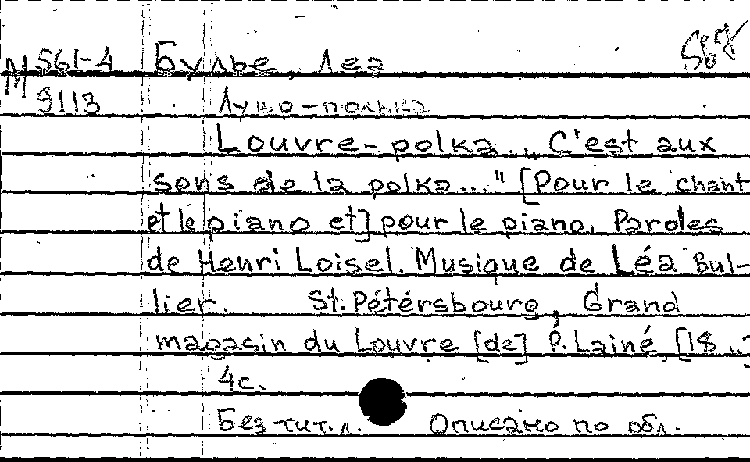 М 561-4 Булье, Леа 568
9113 Лувр-полька
Louvre-polka. „C'est aux
sons de la polka..." [Pour le chant
et le piano et] pour le piano. Paroles
de Henri Loisel. Musique de Léa Bul-
lier. St. Pétersbourg, Grand
magasin du Louvre [de] P. Lainé, [18..]
4 с.
Без тит. л. Описано по обл.